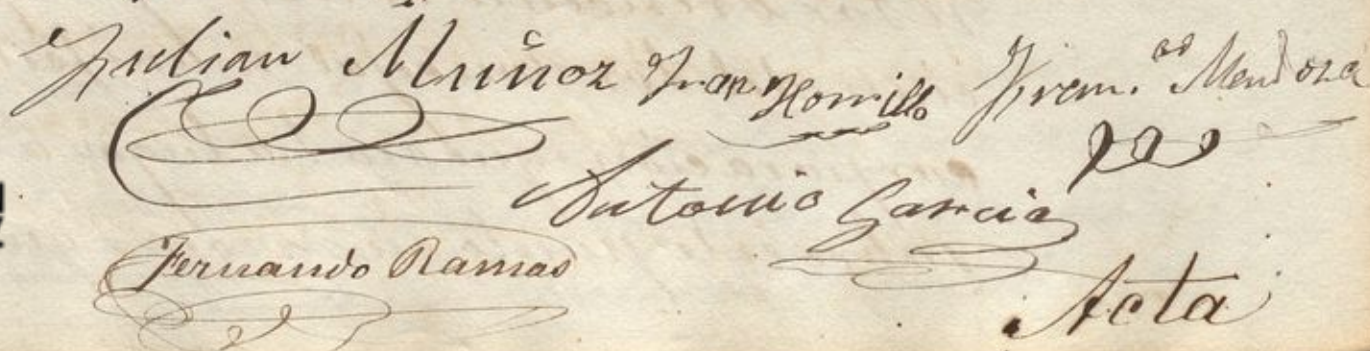 Julian Muñoz Fran.co Horrillo Mendoza
Antonio Garcia
Fernando Ramos
Acta